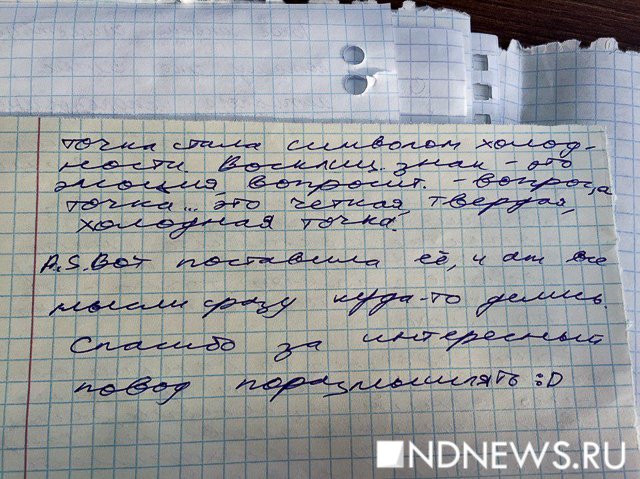 точка стала символом холод-
ности. Восклиц. знак - это
эмоция, вопросит. - вопрос, а
точка... это чёткая, твердая,
холодная точка.
P.S. Вот поставила её, и аж все
мысли сразу куда-то делись.
Спасибо за интересный
повод поразмышлять :D
NDNEWS.RU